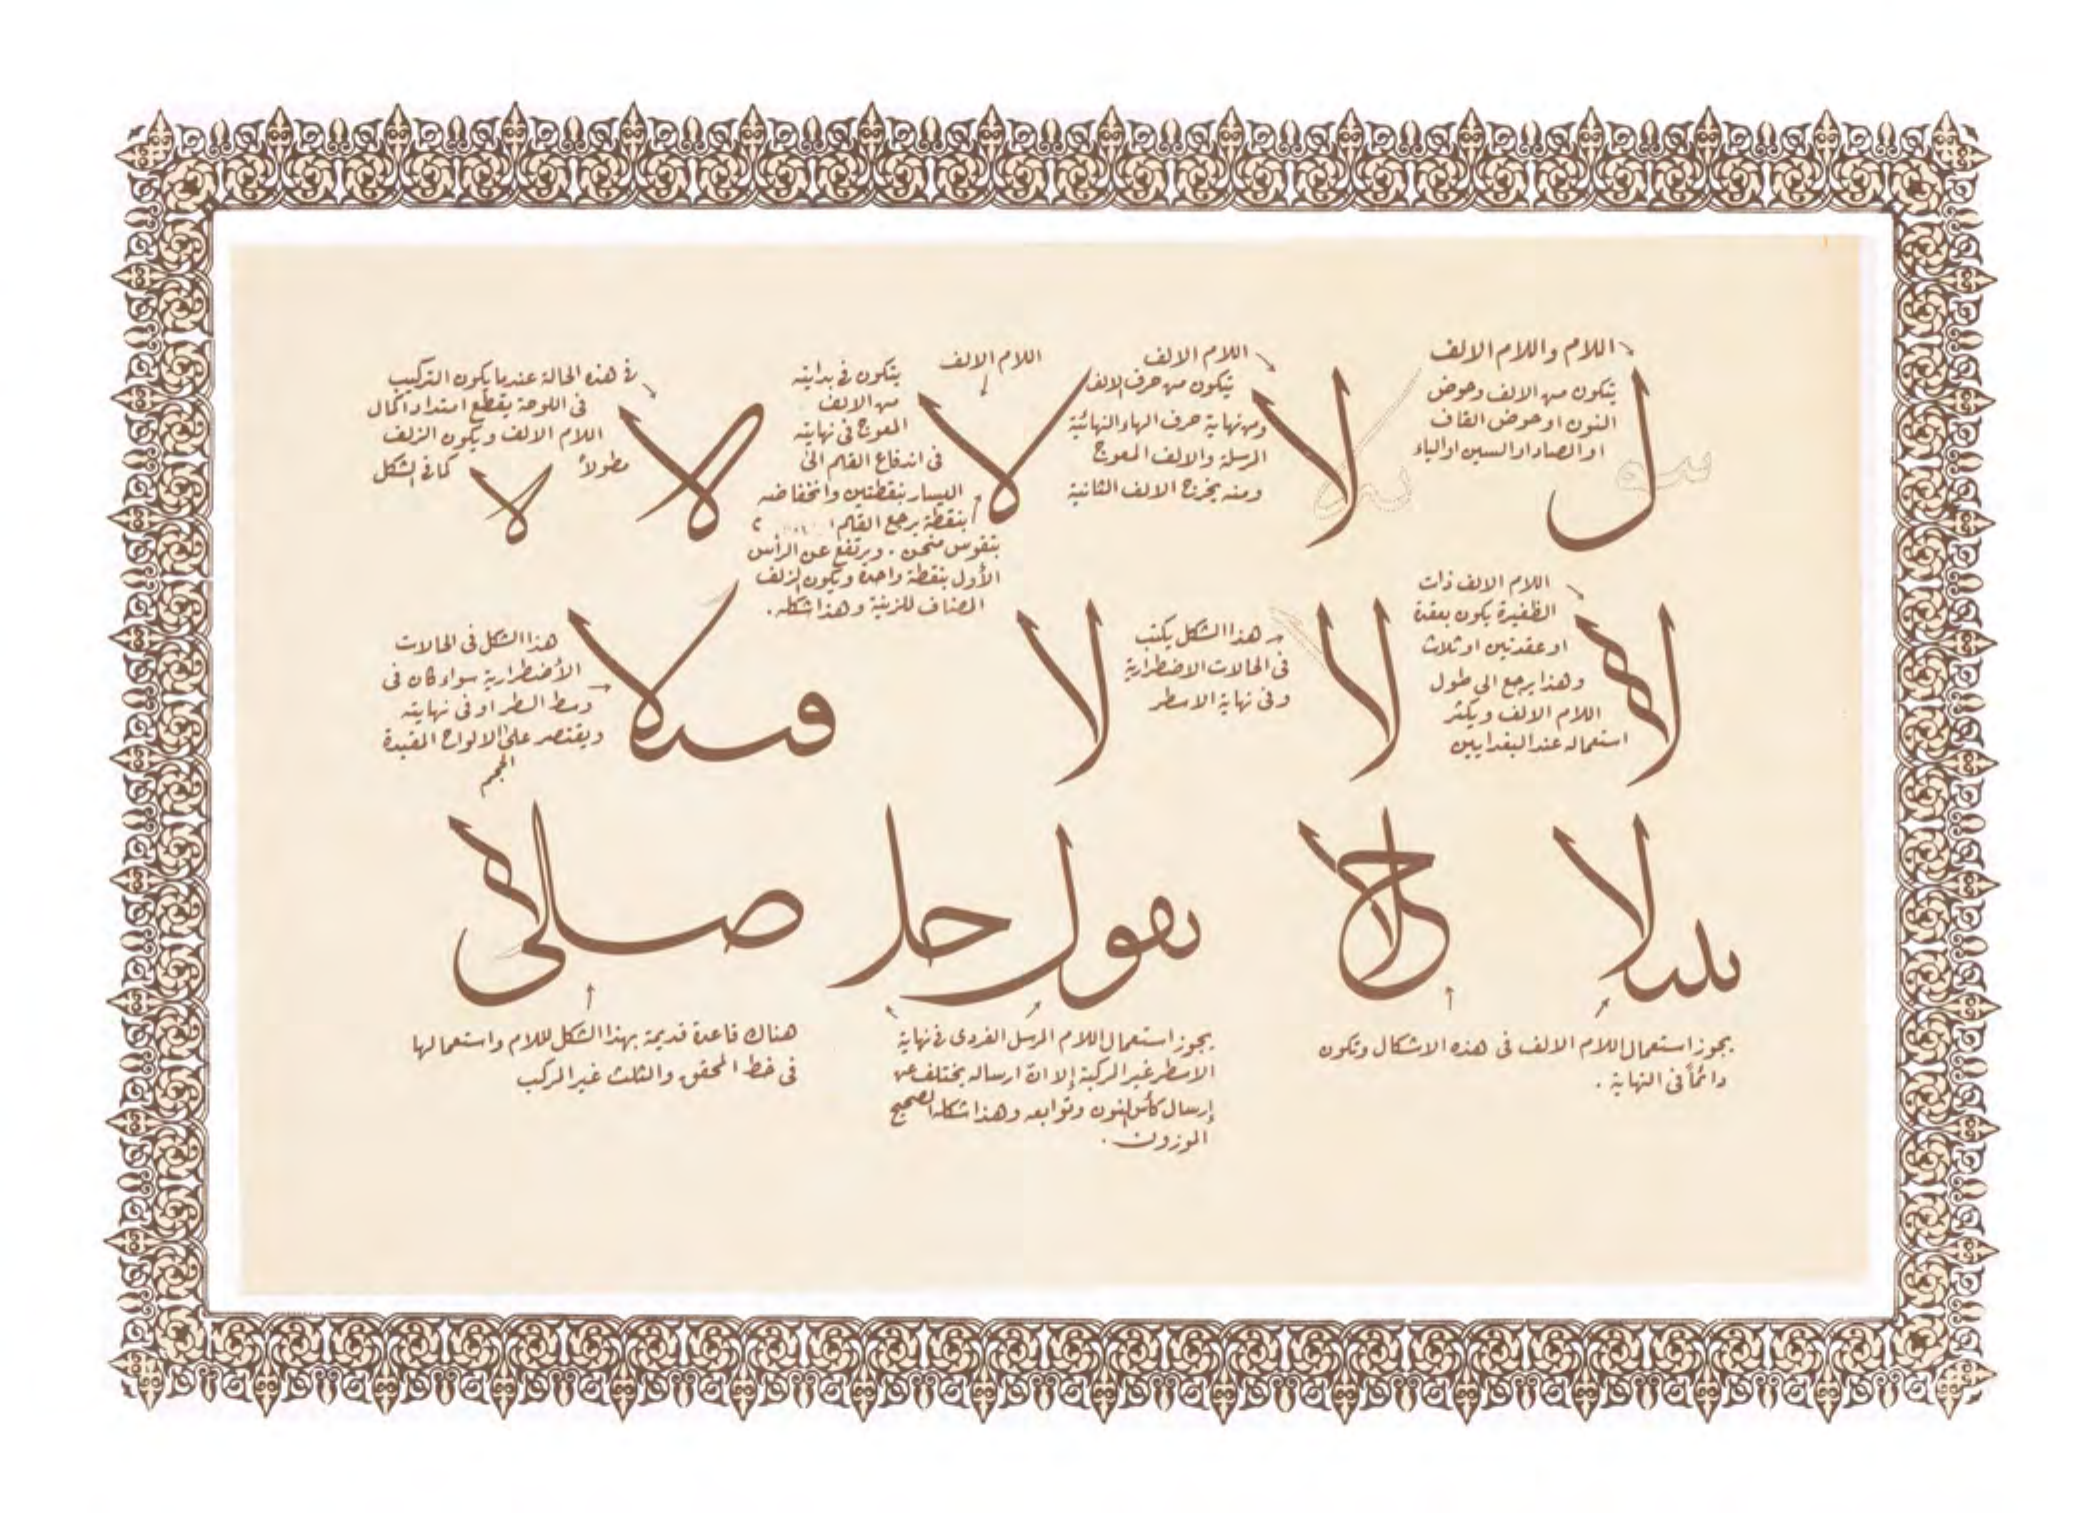 اللام واللام الالف
يتكون من الالف وحوض
النون او حوض القاف
او الصاد او السين او الياء
ل
اللام الالف
يتكون من حرف الالف
ومن نهاية حرف الهاء النهائية
المرسلة والالف المعوج
ومنه يخرج الالف الثانية
لا
اللام الالف
يتكون في بدايته
من الالف
المعوج في نهايته
في اندفاع القلم الى
اليسار بنقطتين وانخفاضه
بنقطة يرجع القلم
بتقوس منحن . ويرتفع عن الرأس
الأول بنقطة واحدة ويكون الزلف
المضاف للزينة وهذا شكله .
لا
في هذه الحالة عندما يكون التركيب
في اللوحة يقطع امتداد اكمال
اللام الالف ويكون الزلف
مطولاً كما في الشكل
لا
لا
اللام الالف ذات
الظفيرة يكون بعقدة
او عقدتين او ثلاث
وهذا يرجع الى طول
اللام الالف ويكثر
استعماله عند البغداديين
لا
هذا الشكل يكتب
في الحالات الاضطرارية
وفي نهاية الاسطر
لا
لا
هذا الشكل في الحالات
الأضطرارية سواء كان في
وسط السطر او في نهايته
ويقتصر على الالواح المقيدة
الحجم
يجوز استعمال اللام الالف في هذه الاشكال وتكون
دائماً في النهاية .
يجوز استعمال اللام المرسل الفردي في نهاية
الاسطر غير المركبة إلا انّ ارساله يختلف عن
إرسال كأس النون وتوابعه وهذا شكله الصحيح
الموزون .
هناك قاعدة قديمة بهذا الشكل للام واستعمالها
في خط المحقق والثلث غير المركب